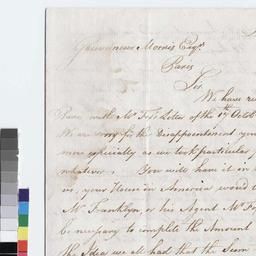 Gouverneur Morris Esqr.
Paris
Sir
We have re
with Mr. Letter of the 17 Octob
We are sorry for the disappointment you
more especially as we took particular
whatever. You will have it in
in, your House in America would
Mr. Franklyn, or his Agent Mr.
be necessary to complete the Amount
the Idea we all had that the Sum